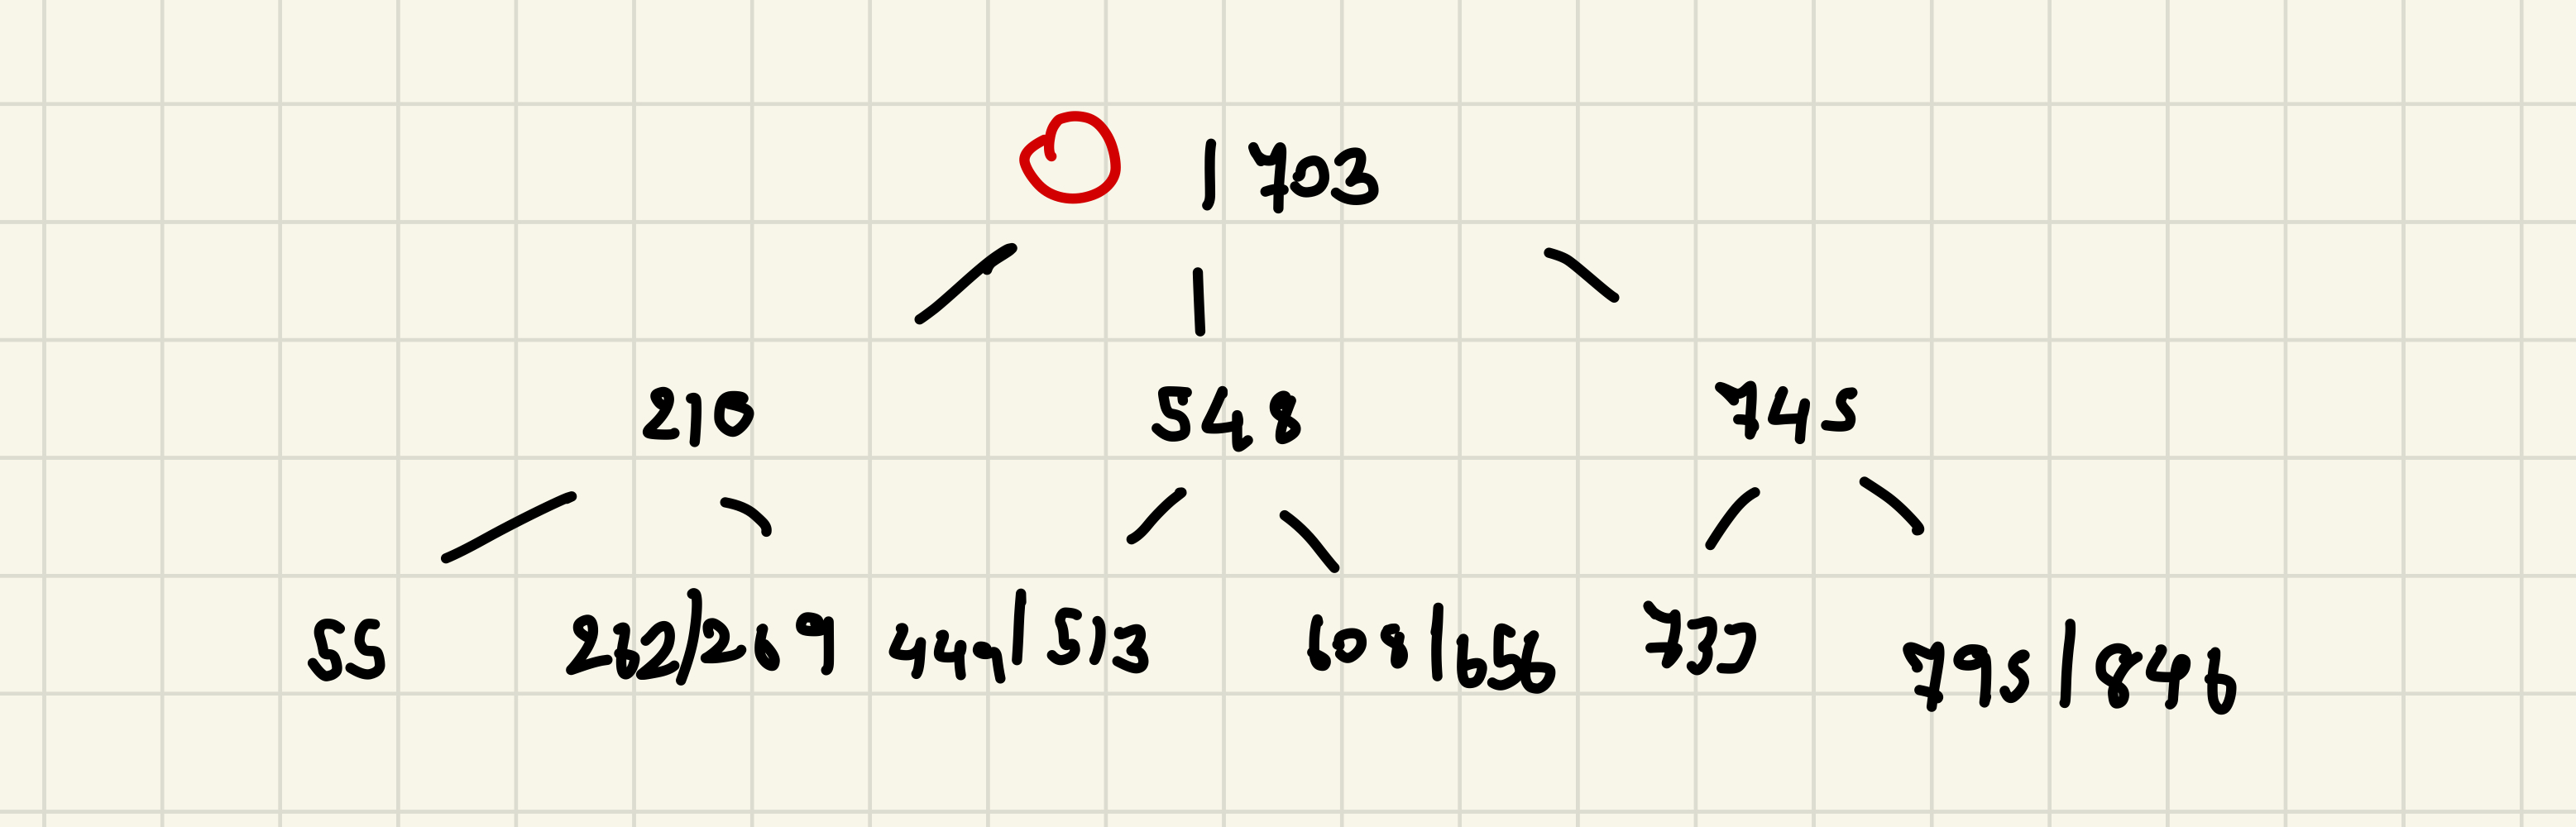 | 703
210 548 745
55 262/269 449/513 608|656 737 795|846